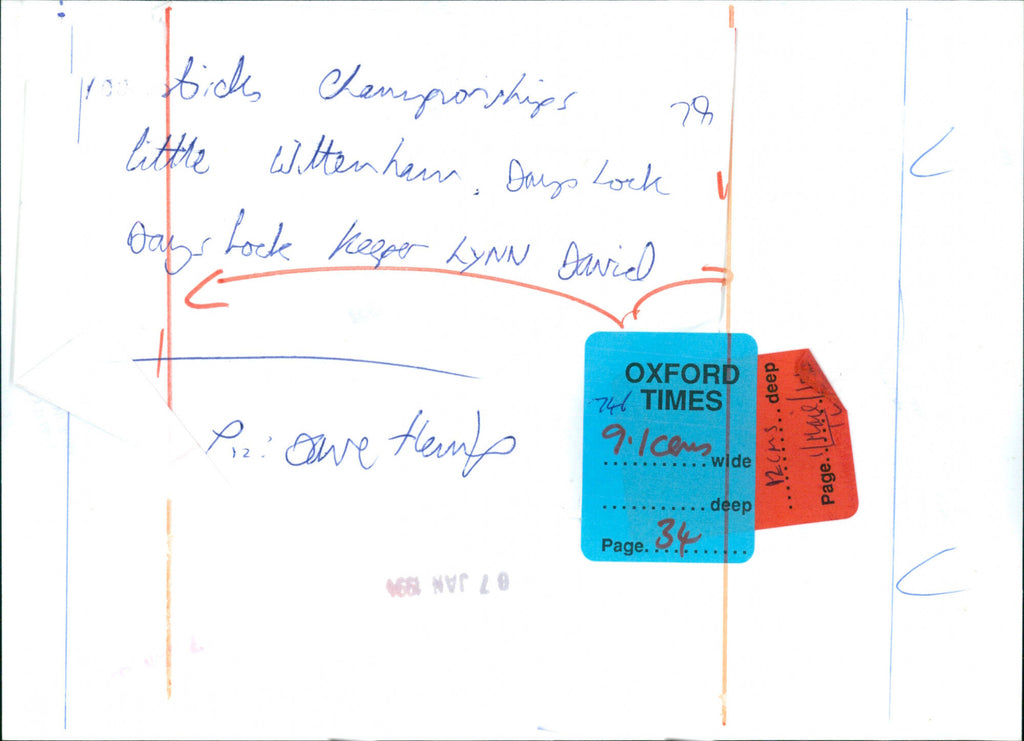 sticks Championships
Little Wittenham, Days Lock
Days Lock Keeper LYNN David
Pic: Dave Hemp
OXFORD
TIMES
746
9.1cms wide
deep
Page 34
deep
Page
07 JAN 1994